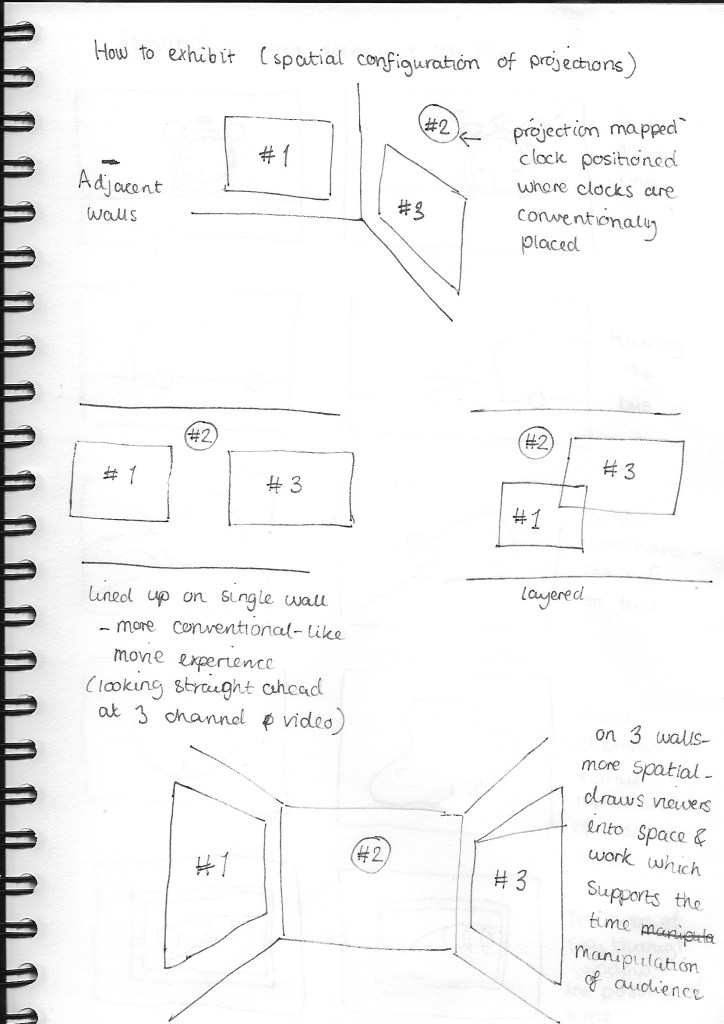 How to exhibit (spatial configuration of projections)
#1
#2
#3
Adjacent
walls
projection mapped
clock positioned
where clocks are
conventionally
placed
#1
#2
#3
lined up on single wall
- more conventional-like
movie experience
(looking straight ahead
at 3 channel video)
#2
#3
#1
layered
#1
#2
#3
on 3 walls-
more spatial-
draws viewers
into space &
work which
supports the
time manipula
manipulation
of audience